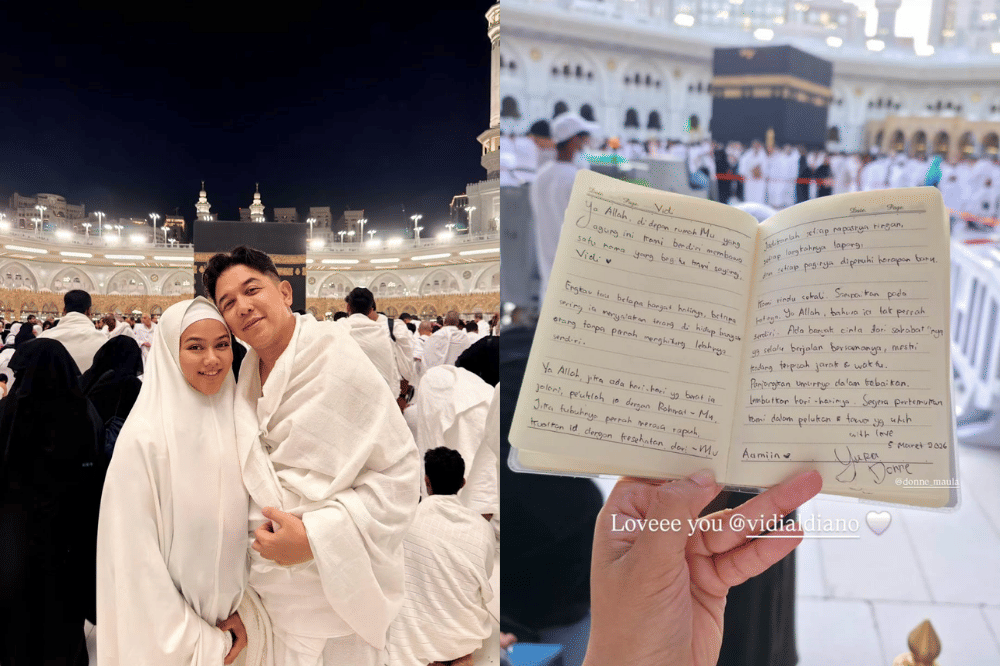 Date: Page:
Vidi
Ya Allah, di depan rumah Mu yang
agung ini kami berdiri membawa
satu nama yang begitu kami sayangi,
Vidi ♥
Engkau tau betapa hangat hatinya, betapa
sering ia menyalakan terang di hidup banyak
orang tanpa pernah menghitung lelahnya
sendiri.
Ya Allah, jika ada hari-hari yg berat ia
jalani, peluklah ia dengan Rahmat-Mu.
Jika tubuhnya pernah merasa rapuh,
kuatkan ia dengan kesehatan dari-Mu
Date: Page:
Jadikanlah setiap napasnya ringan,
setiap langkahnya lapang,
dan setiap paginya dipenuhi harapan baru.
Kami rindu sekali. Sampaikan pada
hatinya Ya Allah, bahwa ia tak pernah
sendiri. Ada banyak cinta dari sahabatnya
yg selalu berjalan bersamanya, meski
kadang terpisah jarak & waktu.
Panjangkan umurnya dalam kebaikan.
Lembutkan hari-harinya. Segera pertemukan
kami dalam pelukan & tawa yg utuh
with love
5 Maret 2026
Aamiin ♥
Yura
Donne
@donne_maula
Loveee you @vidialdiano 🤍